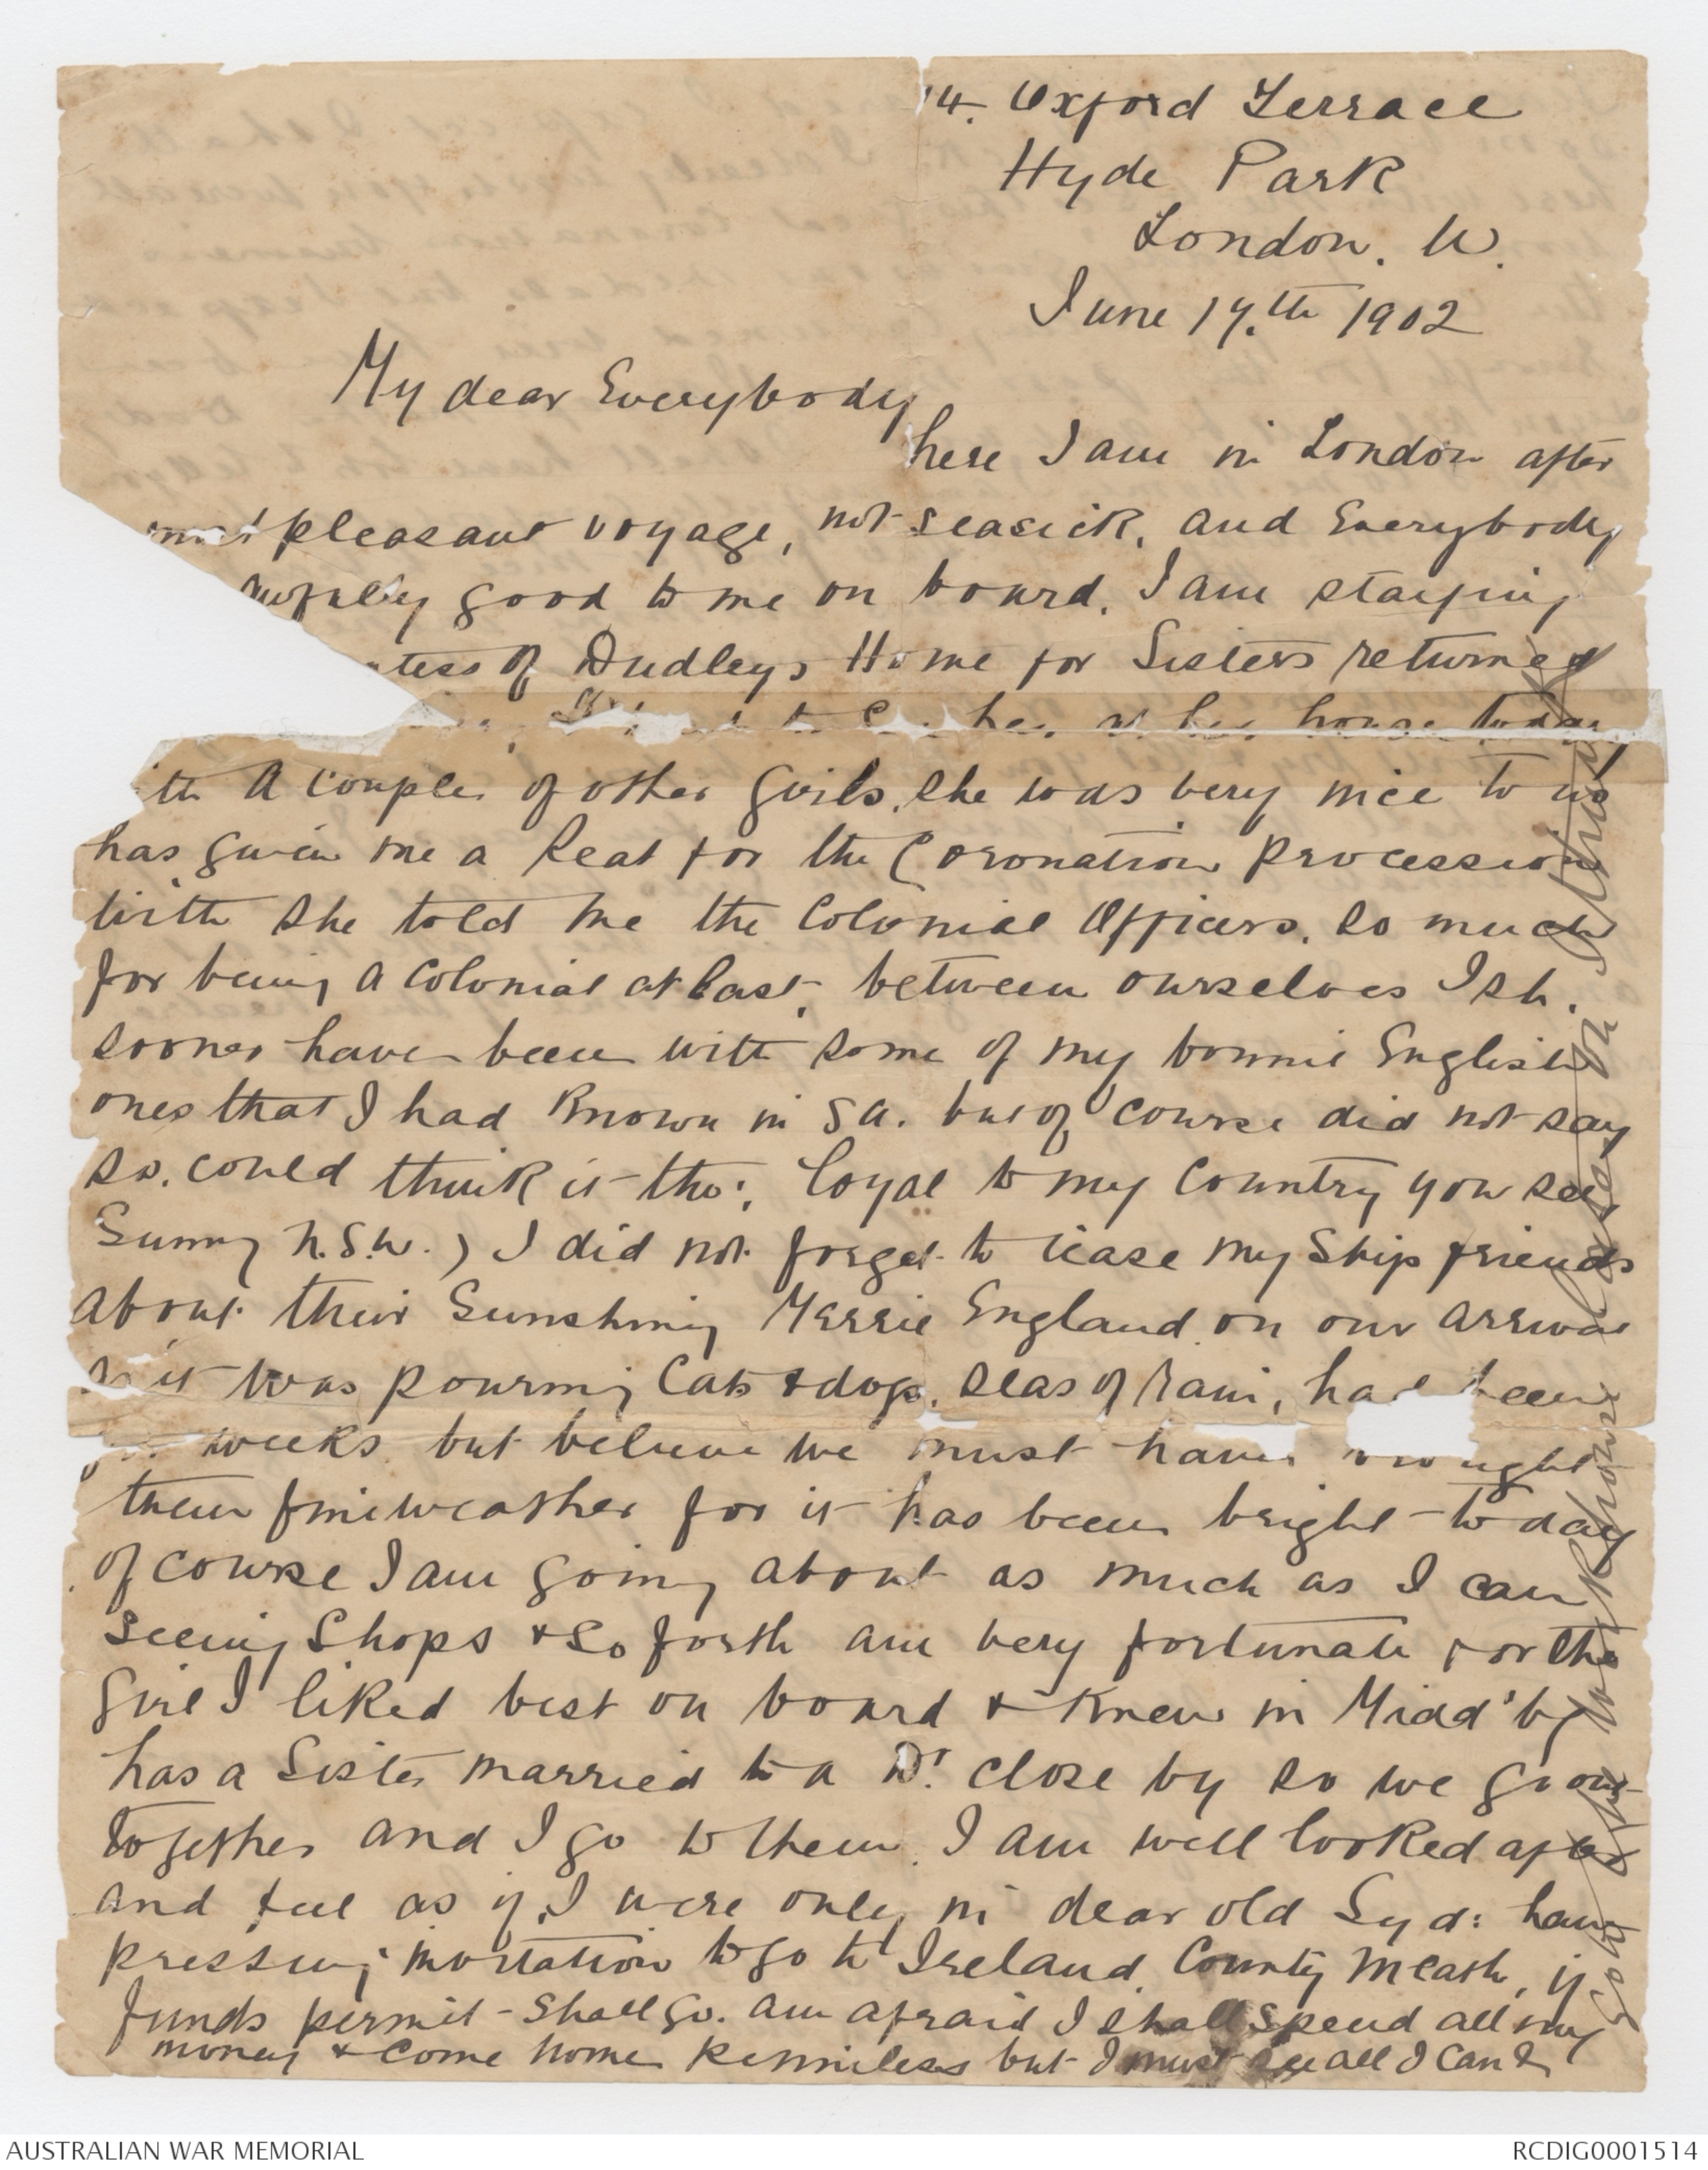 14. Oxford Terrace
Hyde Park
London. W.
June 17.th 1902
My dear Everybody
here I am in London after
most pleasant voyage, not seasick, and Everybody
awfully good to me on board. I am staying
ntess of Dudleys Home for Sisters returned
her at her house today
ith a couple of other girls, she was very nice to us
has given me a seat for the Coronation procession
with she told me the Colonial Officers. so much
for being a Colonial at last, between ourselves I sh.
sooner have been with some of my bonnie English
ones that I had known in S.A. but of course did not say
so. could think it tho', loyal to my Country you see
Sunny N.S.W.) I did not forget to tease my Ship friends
about their Sunshiny Merrie England on our arrival
as it was pouring Cats & dogs, seas of rain, had been
for weeks but believe we must have brought
them fine weather for it has been bright to day
of course I am going about as much as I can
seeing Shops & so forth am very fortunate for the
girl I liked best on board & knew in Midd'by
has a Sister married to a Dr. close by so we go out
together and I go to them. I am well looked after
and feel as if I were only in dear old Syd: have
pressing invitation to go to Ireland. County Meath, if
funds permit - shall go. am afraid I shall spend all my
money & come home penniless but I must see all I can &
go to the workhouse
AUSTRALIAN WAR MEMORIAL
RCDIG0001514